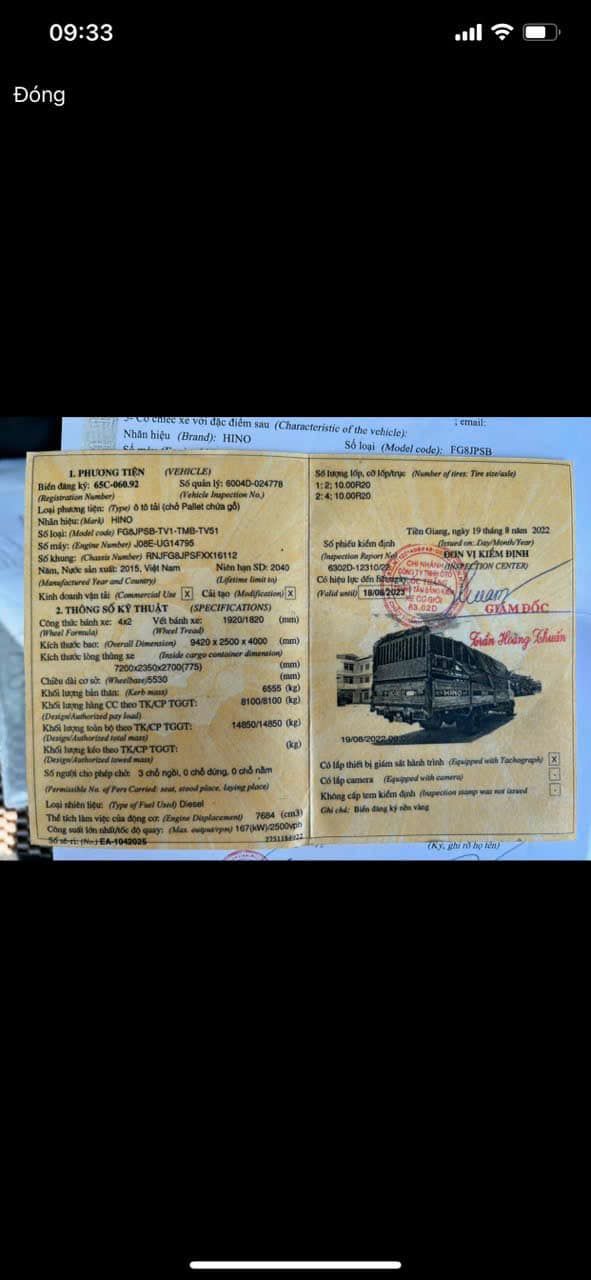 09:33
Đóng
5- Có chiếc xe với đặc điểm sau (Characteristic of the vehicle):
; email:
Nhãn hiệu (Brand): HINO
Số loại (Model code): FG8JPSB
1. PHƯƠNG TIỆN (VEHICLE)
Biển đăng ký: 65C-060.92 Số quản lý: 6004D-024778
(Registration Number) (Vehicle Inspection No.)
Loại phương tiện: (Type) ô tô tải (chở Pallet chứa gỗ)
Nhãn hiệu: (Mark) HINO
Số loại: (Model code) FG8JPSB-TV1-TMB-TV51
Số máy: (Engine Number) J08E-UG14795
Số khung: (Chassis Number) RNJFG8JPSFXX16112
Năm, Nước sản xuất: 2015, Việt Nam Niên hạn SD: 2040
(Manufactured Year and Country) (Lifetime limit to)
Kinh doanh vận tải (Commercial Use X Cải tạo (Modification) X
2. THÔNG SỐ KỸ THUẬT (SPECIFICATIONS)
Công thức bánh xe: 4x2 Vết bánh xe: 1920/1820 (mm)
(Wheel Formula) (Wheel Tread)
Kích thước bao: (Overall Dimension) 9420 x 2500 x 4000 (mm)
Kích thước lòng thùng xe (Inside cargo container dimension)
7200x2350x2700(775) (mm)
Chiều dài cơ sở: (Wheelbase) 5530 (mm)
Khối lượng bản thân: (Kerb mass) 6555 (kg)
Khối lượng hàng CC theo TK/CP TGGT: 8100/8100 (kg)
(Design/Authorized pay load)
Khối lượng toàn bộ theo TK/CP TGGT: 14850/14850 (kg)
(Design/Authorized total mass)
Khối lượng kéo theo TK/CP TGGT: (kg)
(Design/Authorized towed mass)
Số người cho phép chở: 3 chỗ ngồi, 0 chỗ đứng, 0 chỗ nằm
(Permissible No. of Pers Carried: seat, stood place, laying place)
Loại nhiên liệu: (Type of Fuel Used) Diesel
Thể tích làm việc của động cơ: (Engine Displacement) 7684 (cm3)
Công suất lớn nhất/tốc độ quay: (Max. output/rpm) 167(kW)/2500vph
Số sê-ri: (No.) EA-1042025
Số lượng lốp, cỡ lốp/trục (Number of tires: Tire size/axle)
1: 2; 10.00R20
2: 4; 10.00R20
Tiền Giang, ngày 19 tháng 8 năm 2022
Số phiếu kiểm định (Issued on: Day/Month/Year)
(Inspection Report No) ĐƠN VỊ KIỂM ĐỊNH
6302D-12310/22 (INSPECTION CENTER)
Có hiệu lực đến hết ngày
(Valid until) 18/08/2023
CHI NHÁNH
CÔNG TY TNHH ÔTÔ
XE CƠ GIỚI
63.02D
GIÁM ĐỐC
Trần Hoàng Thuấn
HINO
19/08/2022
Có lắp thiết bị giám sát hành trình (Equipped with Tachograph) X
Có lắp camera (Equipped with camera) -
Không cấp tem kiểm định (Inspection stamp was not issued -
Ghi chú: Biển đăng ký nền vàng
(Ký, ghi rõ họ tên)